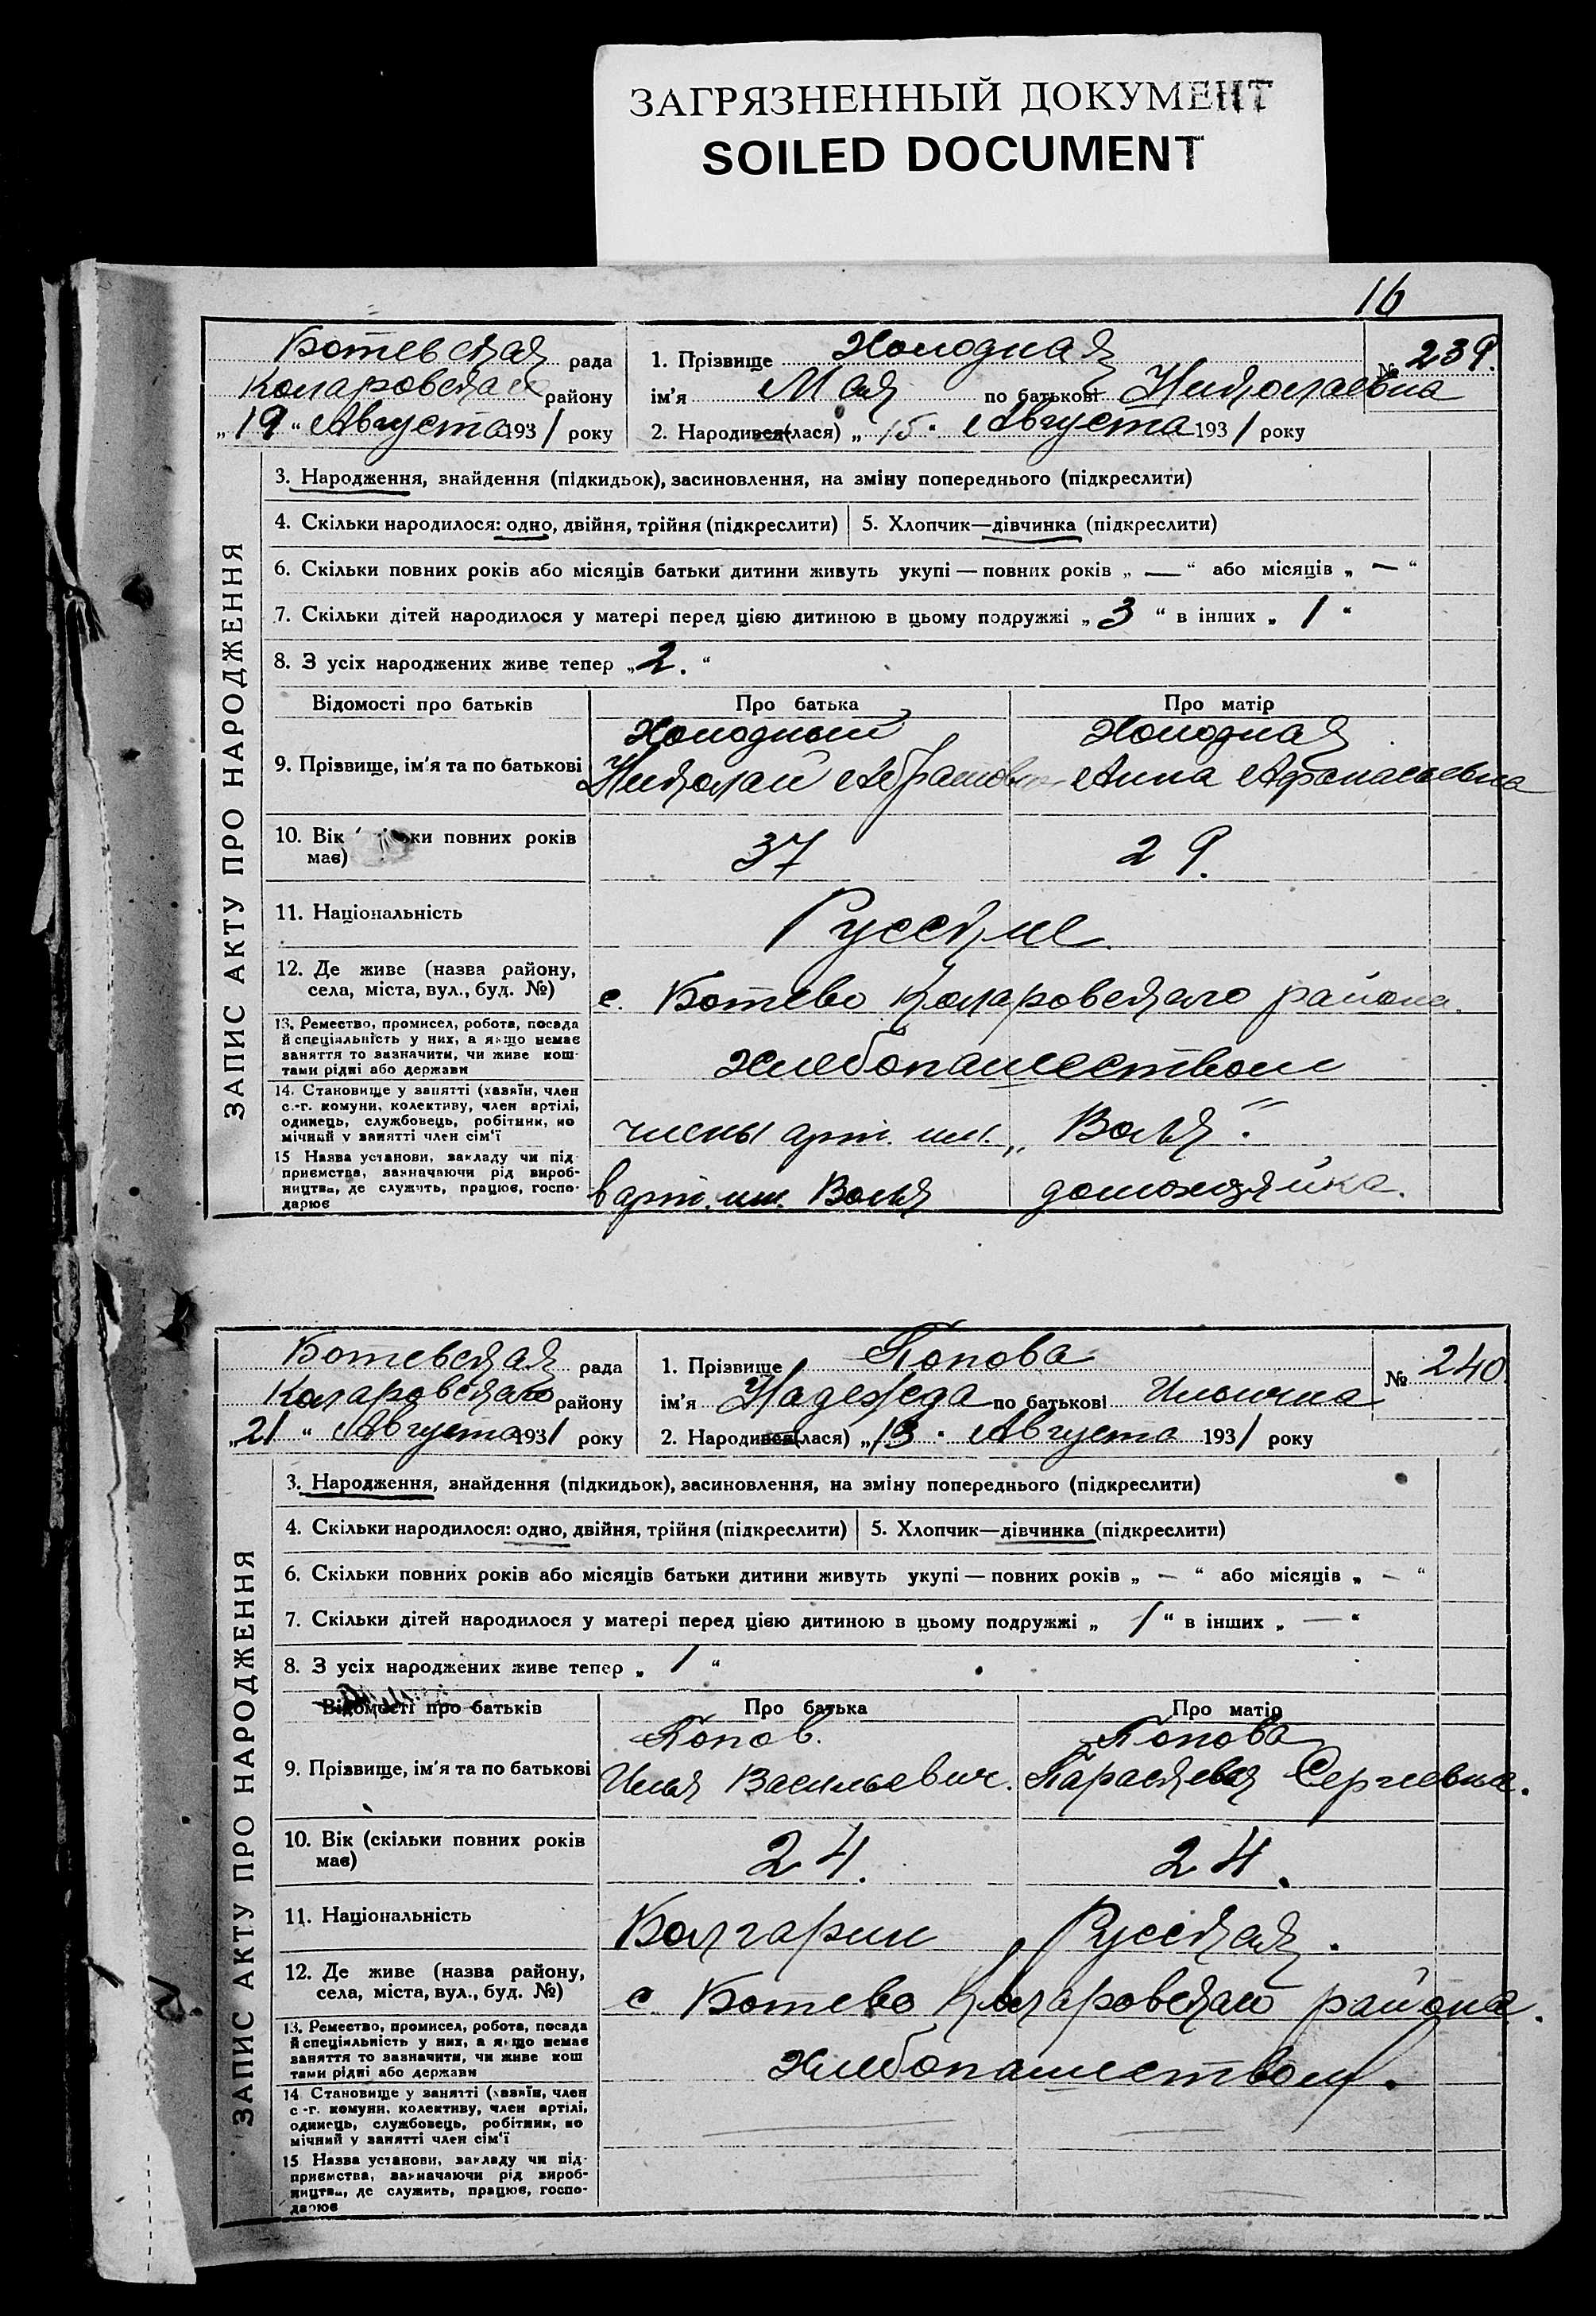 ЗАГРЯЗНЕННЫЙ ДОКУМЕНТ
SOILED DOCUMENT
16
Ботевская рада
Коларовская району
„19“ Августа 1931 року
1. Прізвище Холодная
№ 239.
ім'я Мая по батькові Николаевна
2. Народився(лася) „15“ Августа 1931 року
ЗАПИС АКТУ ПРО НАРОДЖЕННЯ
3. Народження, знайдення (підкидьок), засиновлення, на зміну попереднього (підкреслити)
4. Скільки народилося: одно, двійня, трійня (підкреслити) 5. Хлопчик—дівчинка (підкреслити)
6. Скільки повних років або місяців батьки дитини живуть укупі — повних років „ — “ або місяців „ — “
7. Скільки дітей народилося у матері перед цією дитиною в цьому подружжі „ 3 “ в інших „ 1 “
8. З усіх народжених живе тепер „ 2. “
Відомості про батьків Про батька Про матір
Холодный Холодная
9. Прізвище, ім'я та по батькові Николай Абрамов Анна Афанасьевна
10. Вік ки повних років
має) 37 29.
11. Національність Русские
12. Де живе (назва району,
села, міста, вул., буд. №) с. Ботево Коларовского района.
13. Ремество, промисел, робота, посада
й спеціяльність у них, а якщо немає
заняття то зазначити, чи живе кош-
тами рідні або держави Хлебопашеством
14. Становище у занятті (хазяїн, член
с.-г. комуни, колективу, член артілі,
одинець, службовець, робітник, по
мічний у занятті член сім'ї члены арт. им. „Воля“.
15 Назва установи, закладу чи під-
приємства, зазначаючи рід вироб-
ництва, де служить, працює, госпо-
дарює в арт. им. Воля домохозяйка.
Ботевская рада
Коларовского району
„21“ Августа 1931 року
1. Прізвище Попова
№ 240.
ім'я Надежда по батькові Ильична
2. Народився(лася) „13“ Августа 1931 року
ЗАПИС АКТУ ПРО НАРОДЖЕННЯ
3. Народження, знайдення (підкидьок), засиновлення, на зміну попереднього (підкреслити)
4. Скільки народилося: одно, двійня, трійня (підкреслити) 5. Хлопчик—дівчинка (підкреслити)
6. Скільки повних років або місяців батьки дитини живуть укупі — повних років „ — “ або місяців „ — “
7. Скільки дітей народилося у матері перед цією дитиною в цьому подружжі „ 1 “ в інших „ — “
8. З усіх народжених живе тепер „ 1 “
Відомості про батьків Про батька Про матір
Попов. Попова
9. Прізвище, ім'я та по батькові Илья Васильевич. Параскевия Сергеевна.
10. Вік (скільки повних років
має) 24. 24.
11. Національність Болгарин Русская.
12. Де живе (назва району,
села, міста, вул., буд. №) с. Ботево Коларовского района.
13. Ремество, промисел, робота, посада
й спеціяльність у них, а якщо немає
заняття то зазначити, чи живе кош
тами рідні або держави Хлебопашеством.
14 Становище у занятті (хазяїн, член
с.-г. комуни, колективу, член артілі,
одинець, службовець, робітник, по
мічний у занятті член сім'ї
15 Назва установи, закладу чи під-
приємства, зазначаючи рід вироб-
ництва, де служить, працює, госпо-
дарює